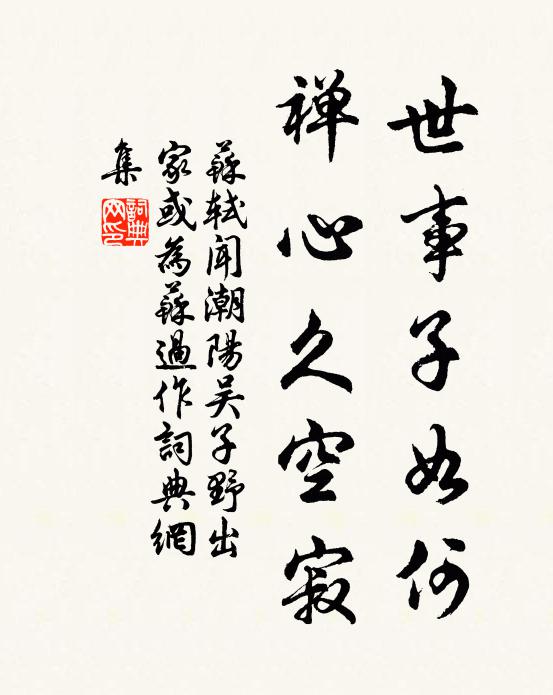 世事子如何
禅心久空寂
蘇軾聞潮陽吴子野出
家或為蘇過作詞典網
集
詞典
网印